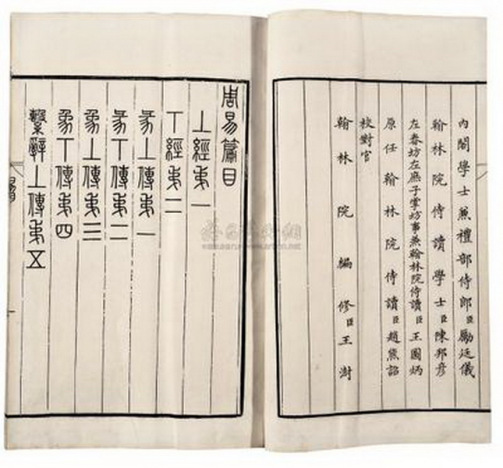 內閣學士兼禮部侍郎臣勵廷儀
翰林院侍讀學士臣陳邦彥
左春坊左庶子掌坊事兼翰林院侍讀臣王圖炳
原任翰林院侍讀臣趙熊詔
校對官
翰林院編修臣王澍
周易篇目
上經弟一
下經弟二
彖上傳弟一
彖下傳弟二
象上傳弟三
象下傳弟四
繫辭上傳弟五